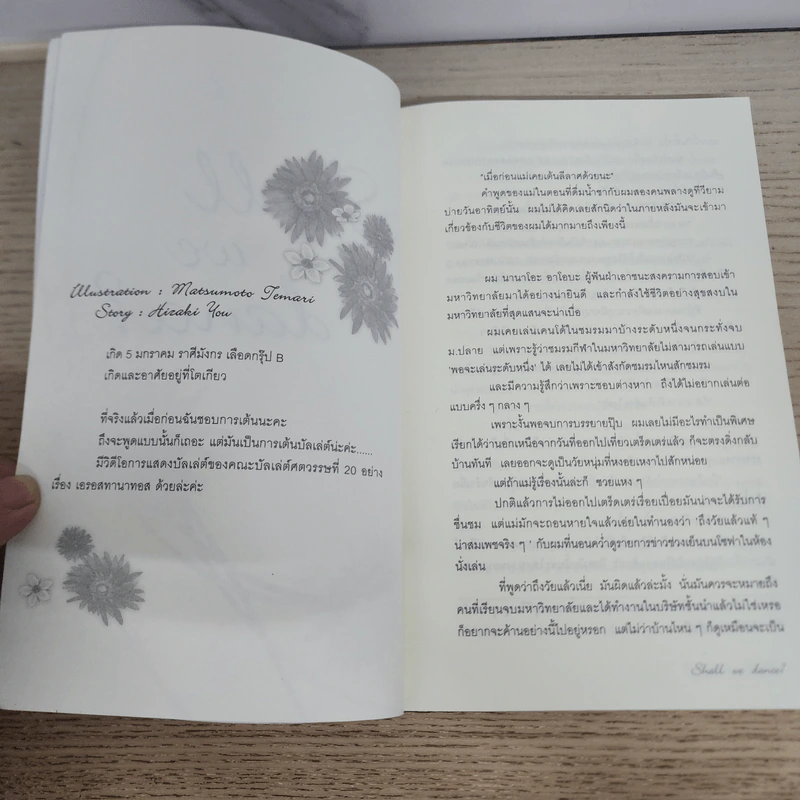 Illustration : Matsumoto Temari
Story : Hizaki You
เกิด 5 มกราคม ราศีมังกร เลือดกรุ๊ป B
เกิดและอาศัยอยู่ที่โตเกียว
ที่จริงแล้วเมื่อก่อนฉันชอบการเต้นนะคะ
ถึงจะพูดแบบนั้นก็เถอะ แต่มันเป็นการเต้นบัลเล่ต์น่ะค่ะ......
มีวิดีโอการแสดงบัลเล่ต์ของคณะบัลเล่ต์ศตวรรษที่ 20 อย่าง
เรื่อง เอรอสทานาทอส ด้วยล่ะค่ะ
"เมื่อก่อนแม่เคยเต้นลีลาศด้วยนะ"
คำพูดของแม่ในตอนที่ดื่มน้ำชากับผมสองคนพลางดูทีวียาม
บ่ายวันอาทิตย์นั้น ผมไม่ได้คิดเลยสักนิดว่าในภายหลังมันจะเข้ามา
เกี่ยวข้องกับชีวิตของผมได้มากมายถึงเพียงนี้
ผม นานาโอะ อาโอบะ ผู้ฟันฝ่าเอาชนะสงครามการสอบเข้า
มหาวิทยาลัยมาได้อย่างน่ายินดี และกำลังใช้ชีวิตอย่างสุขสงบใน
มหาวิทยาลัยที่สุดแสนจะน่าเบื่อ
ผมเคยเล่นเคนโด้ในชมรมมาบ้างระดับหนึ่งจนกระทั่งจบ
ม.ปลาย แต่เพราะรู้ว่าชมรมกีฬาในมหาวิทยาลัยไม่สามารถเล่นแบบ
'พอจะเล่นระดับหนึ่ง' ได้ เลยไม่ได้เข้าสังกัดชมรมไหนสักชมรม
และมีความรู้สึกว่าเพราะชอบต่างหาก ถึงได้ไม่อยากเล่นต่อ
แบบครึ่ง ๆ กลาง ๆ
เพราะงั้นพอจบการบรรยายปุ๊บ ผมเลยไม่มีอะไรทำเป็นพิเศษ
เรียกได้ว่านอกเหนือจากวันที่ออกไปเที่ยวเตร็ดเตร่แล้ว ก็จะตรงดิ่งกลับ
บ้านทันที เลยออกจะดูเป็นวัยหนุ่มที่หงอยเหงาไปสักหน่อย
แต่ถ้าแม่รู้เรื่องนั้นล่ะก็ ซวยแหง ๆ
ปกติแล้วการไม่ออกไปเตร็ดเตร่เรื่อยเปื่อยมันน่าจะได้รับการ
ชื่นชม แต่แม่มักจะถอนหายใจแล้วเอ่ยในทำนองว่า 'ถึงวัยแล้วแท้ ๆ
น่าสมเพชจริง ๆ' กับผมที่นอนคว่ำดูรายการข่าวช่วงเย็นบนโซฟาในห้อง
นั่งเล่น
ที่พูดว่าถึงวัยแล้วเนี่ย มันผิดแล้วล่ะมั้ง นั่นมันควรจะหมายถึง
คนที่เรียนจบมหาวิทยาลัยและได้ทำงานในบริษัทชั้นนำแล้วไม่ใช่เหรอ
ก็อยากจะค้านอย่างนี้ไปอยู่หรอก แต่ไม่ว่าบ้านไหน ๆ ก็ดูเหมือนจะเป็น
Shall we dance?